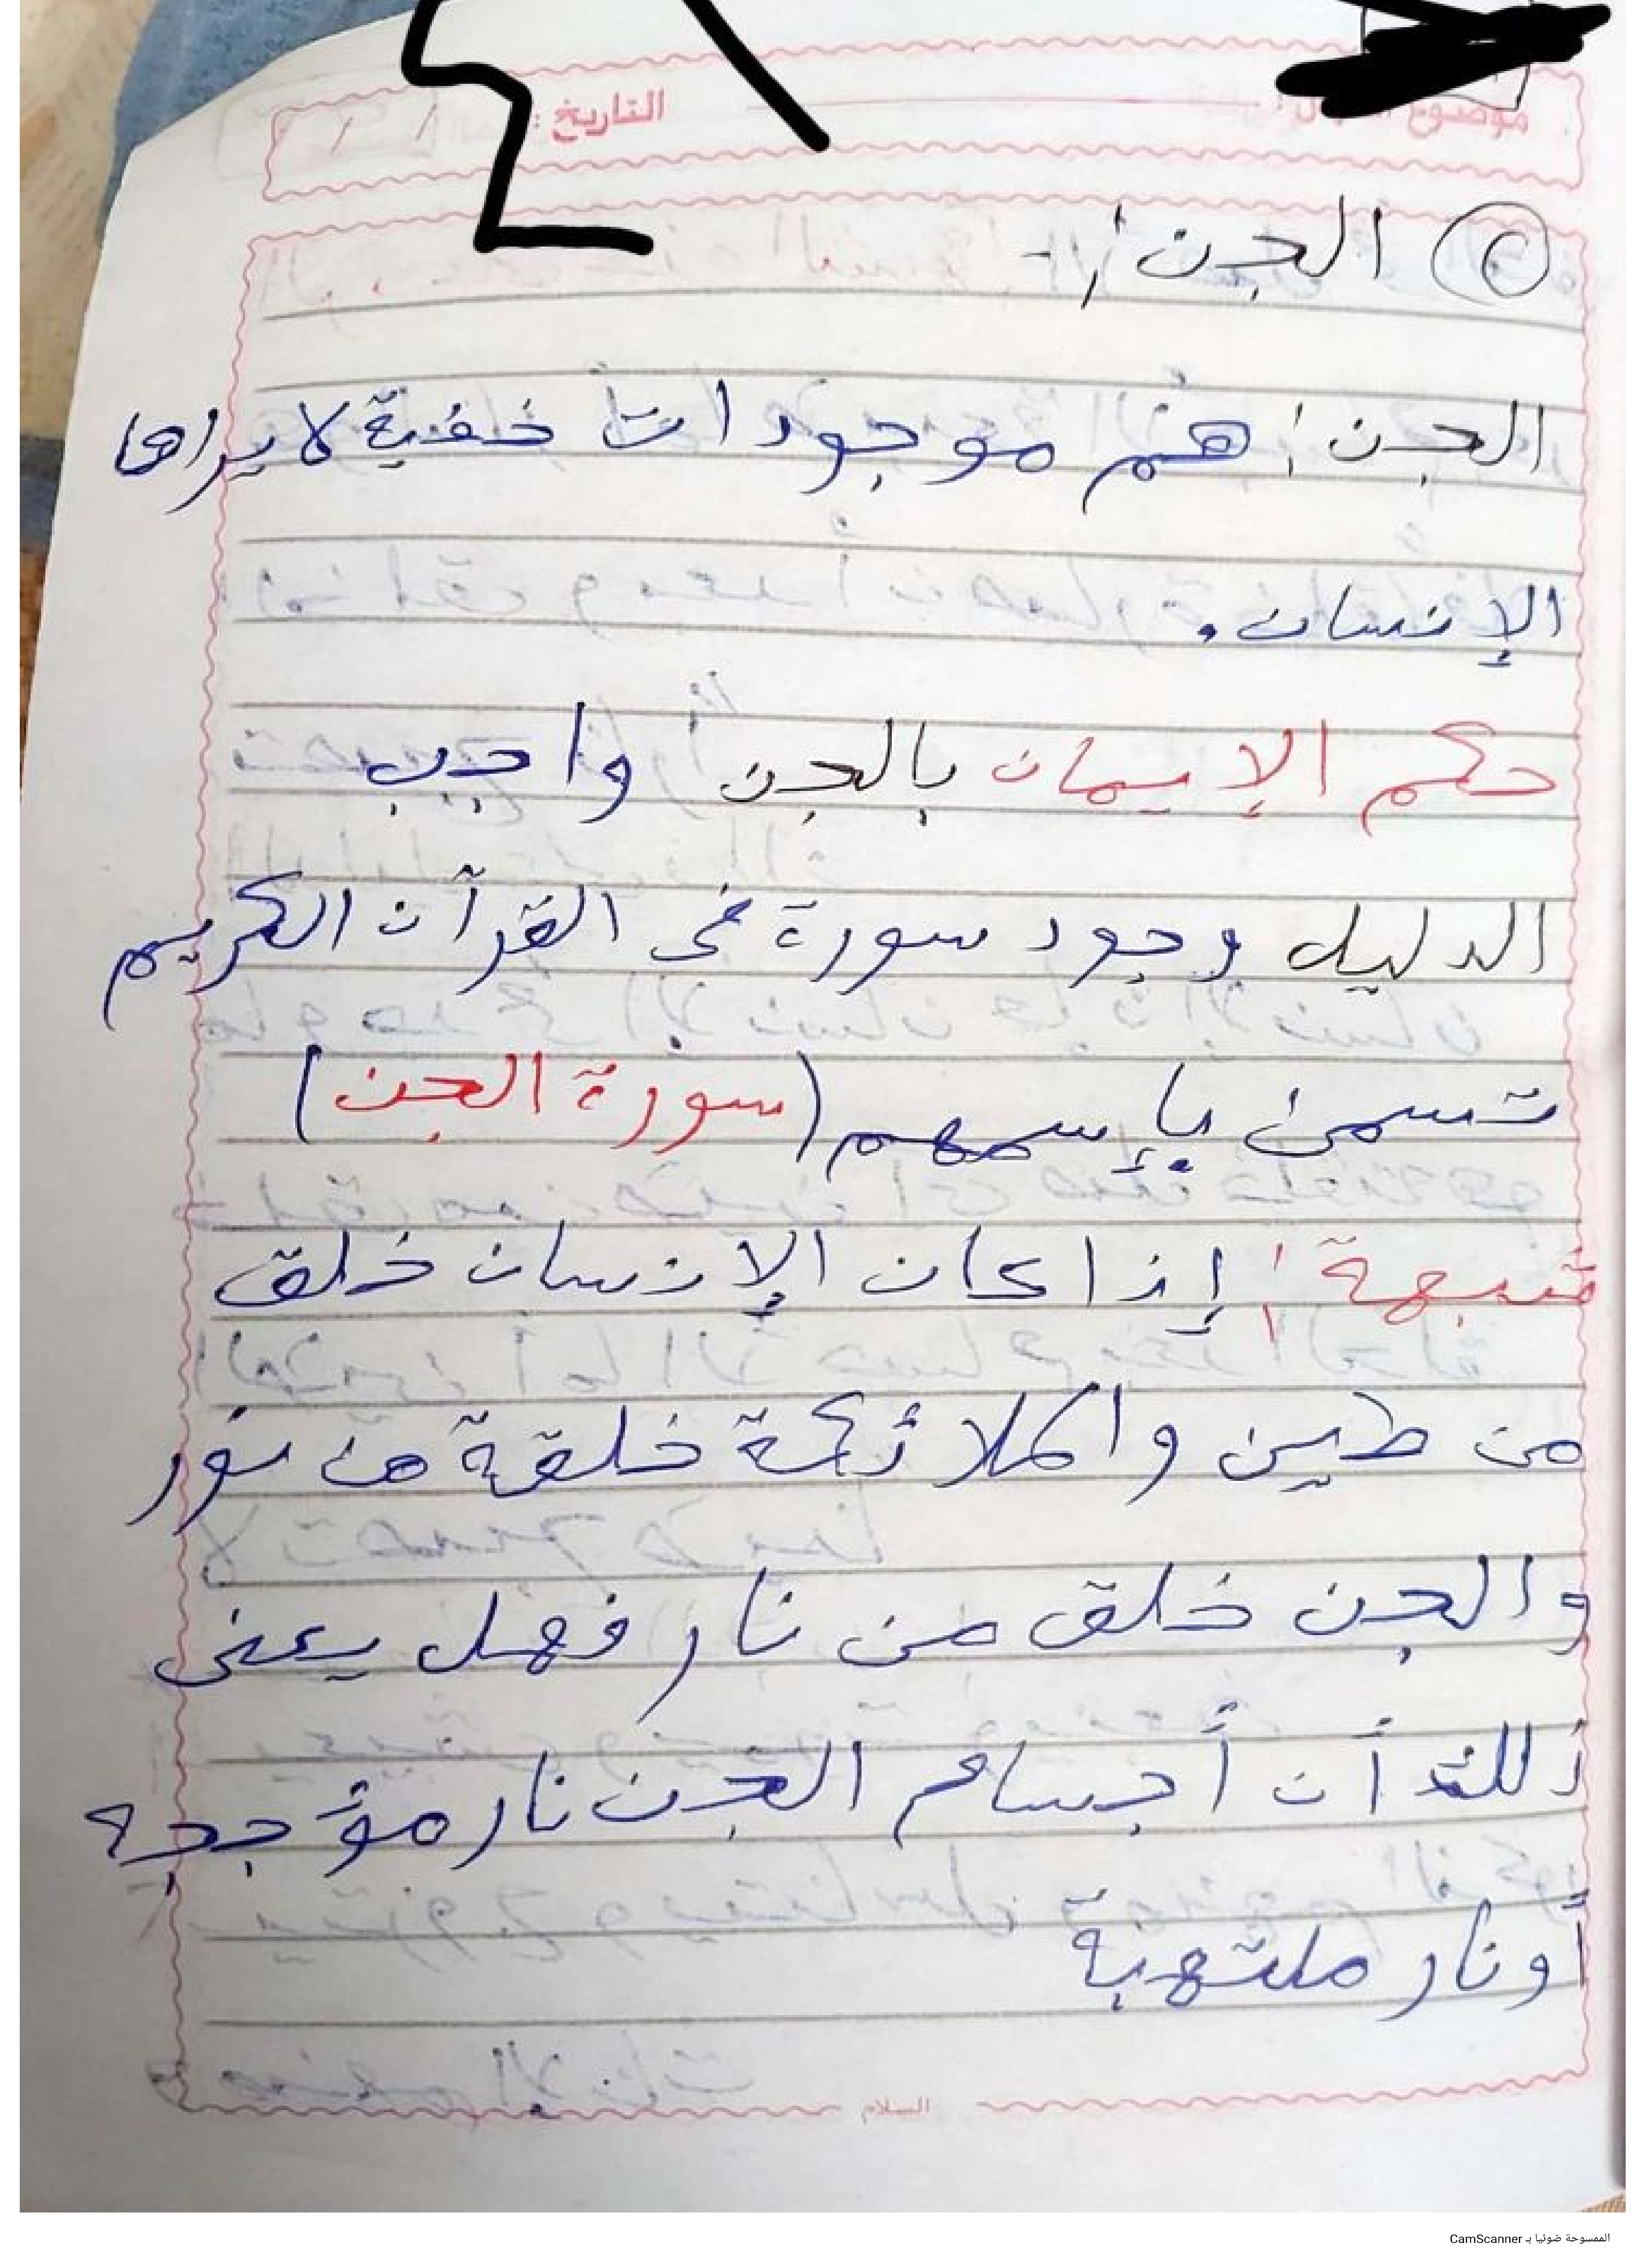 التاريخ : / /
٢ الجن :-
الجن : هم موجودات خفية لا يراها
الإنسان .
حكم الإيمان بالجن واجب
الدليل وجود سورة في القرآن الكريم
تسمى بإسمهم (سورة الجن)
شبهة : إذا كان الإنسان خلق
من طين والملائكة خلقة من نور
والجن خلق من نار فهل يعني
ذلك أن أجسام الجن نار مؤججه
أو نار ملتهبة
السلام
الممسوحة ضوئيا بـ CamScanner